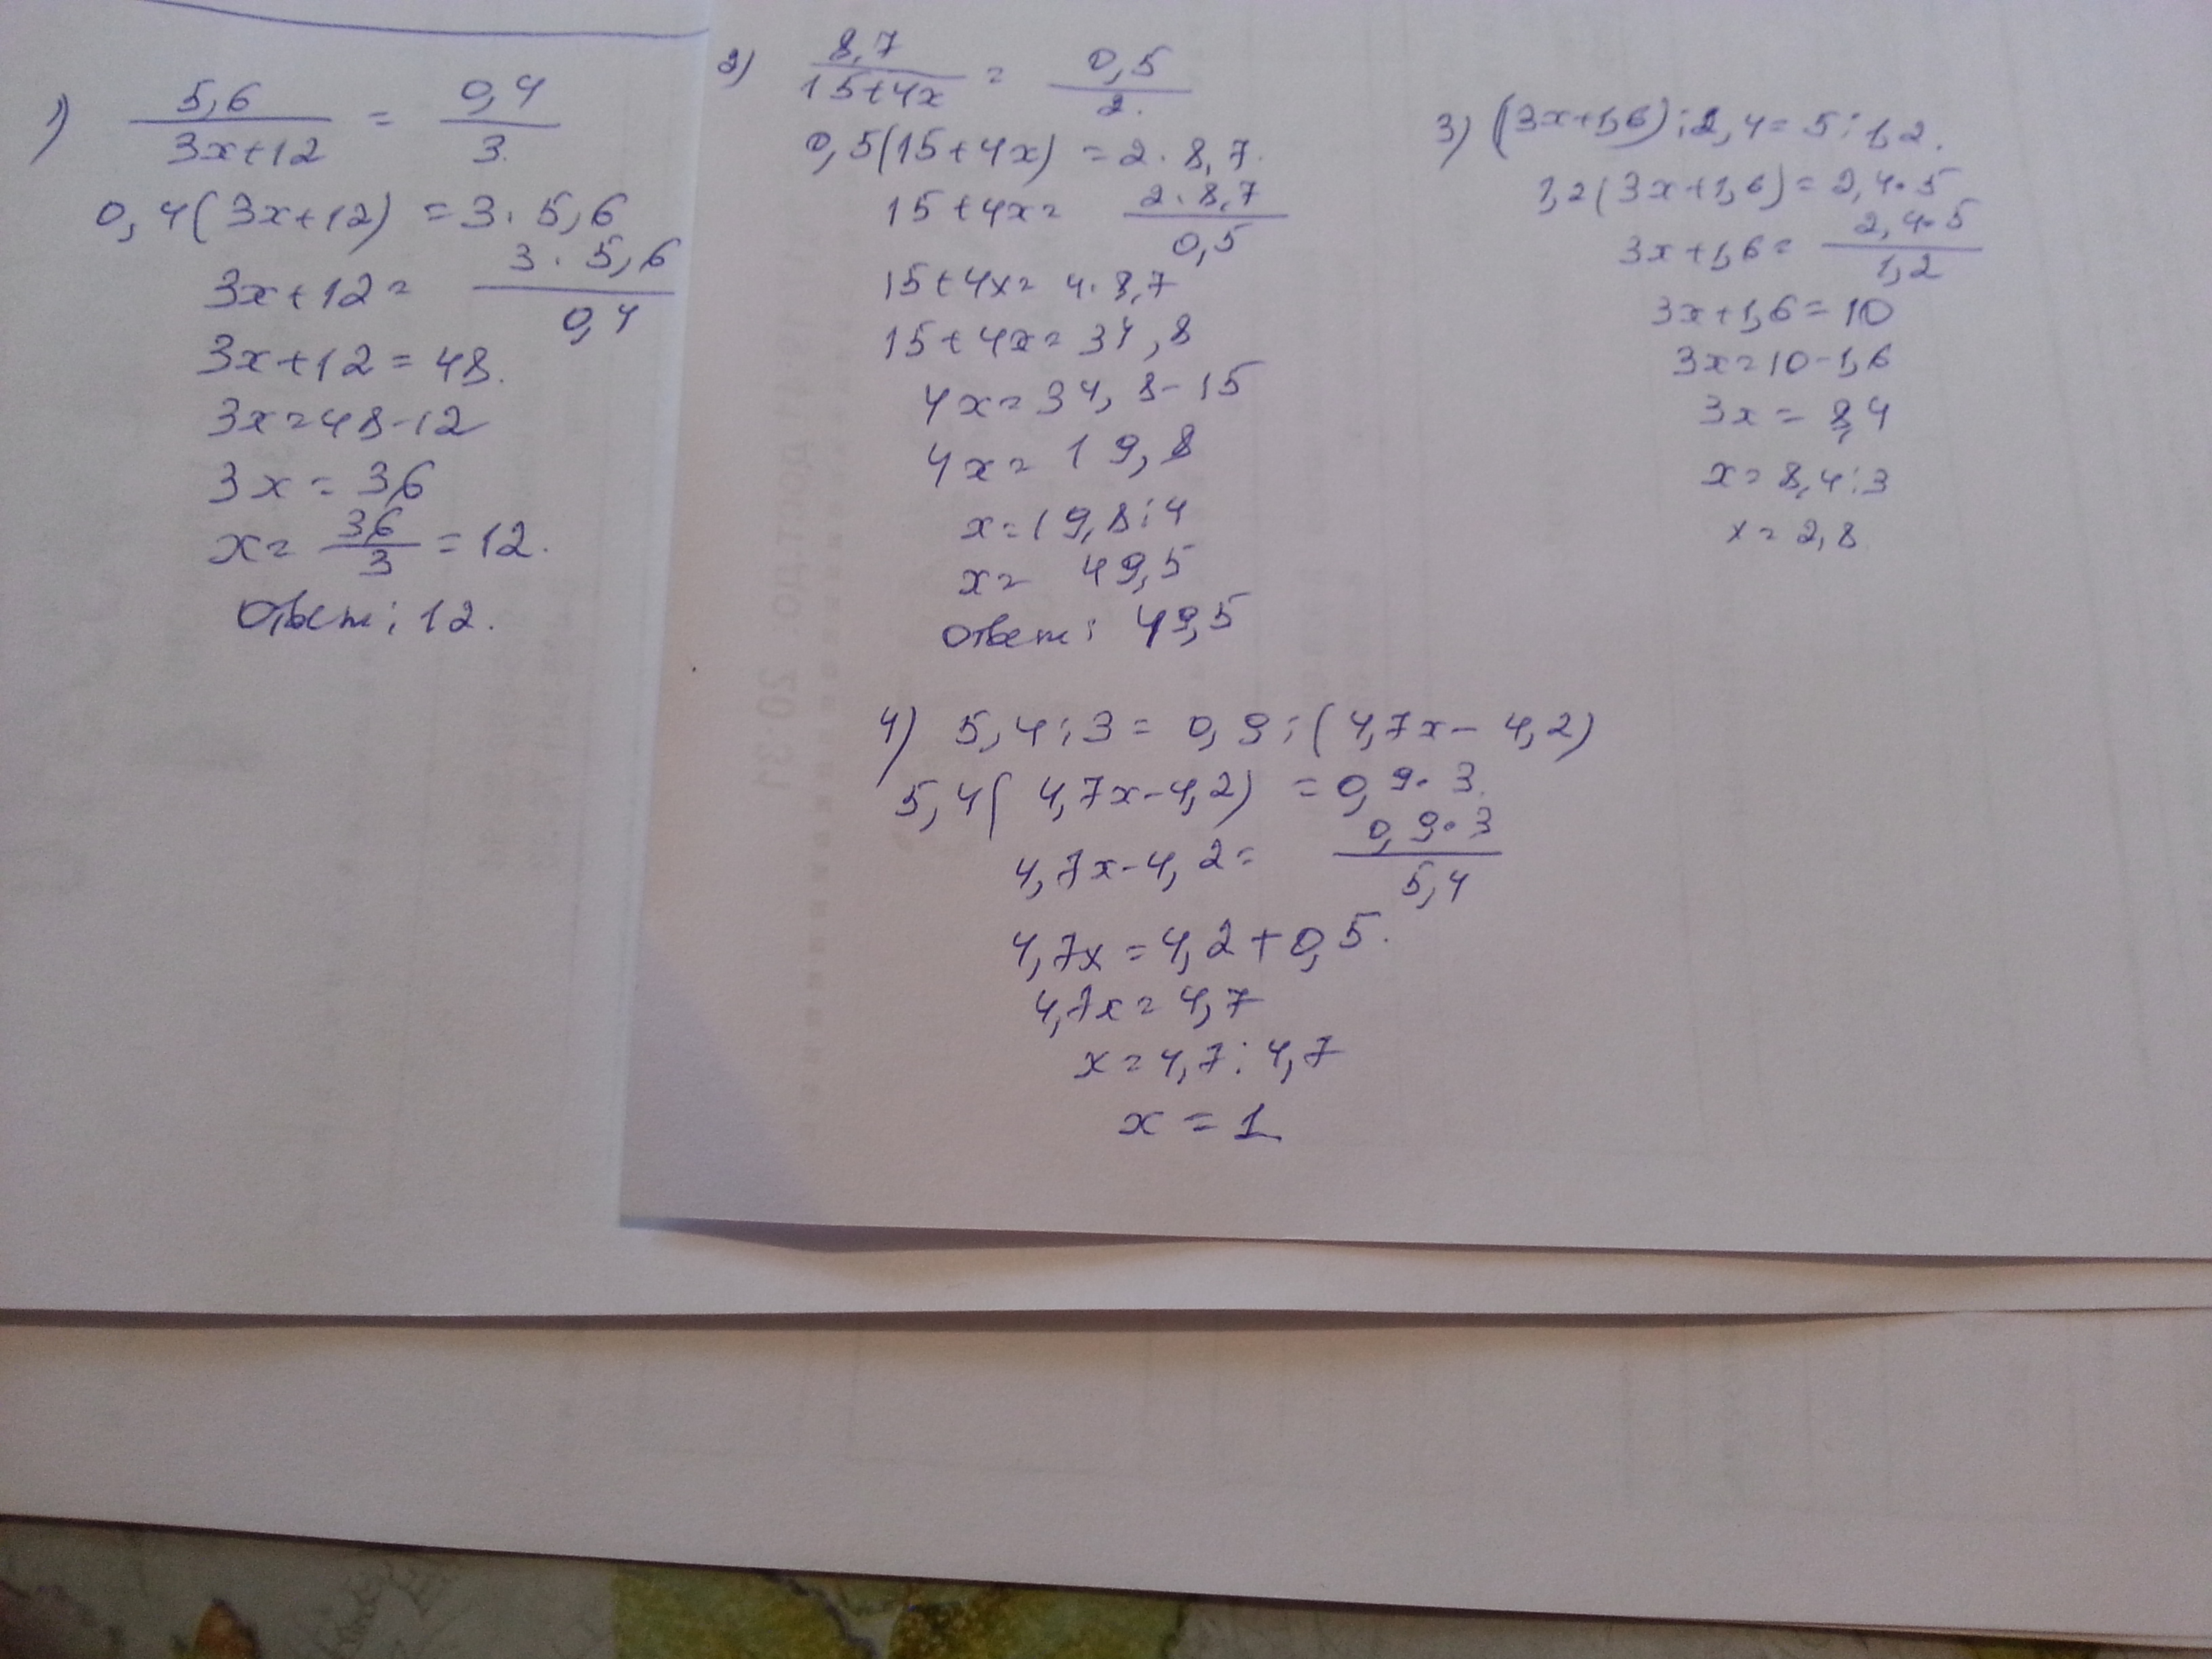 1) 5,6/(3x+12) = 0,4/3.
0,4(3x+12) = 3·5,6
3x+12 = 3·5,6/0,4
3x+12 = 48.
3x=48-12
3x = 36
x = 36/3 = 12.
Ответ: 12.
2) 8,7/(15+4x) = 0,5/2.
0,5(15+4x) = 2·8,7.
15+4x = 2·8,7/0,5
15+4x = 4·8,7
15+4x = 34,8
4x = 34,8-15
4x = 19,8
x = 19,8:4
x = 49,5
Ответ: 49,5
3) (3x+1,6):2,4=5:1,2.
1,2(3x+1,6)=2,4·5
3x+1,6 = 2,4·5/1,2
3x+1,6=10
3x=10-1,6
3x = 8,4
x = 8,4:3
x = 2,8
4) 5,4:3 = 0,9:(4,7x-4,2)
5,4(4,7x-4,2) = 0,9·3.
4,7x-4,2 = 0,9·3/5,4
4,7x = 4,2+0,5.
4,7x = 4,7
x = 4,7:4,7
x = 1